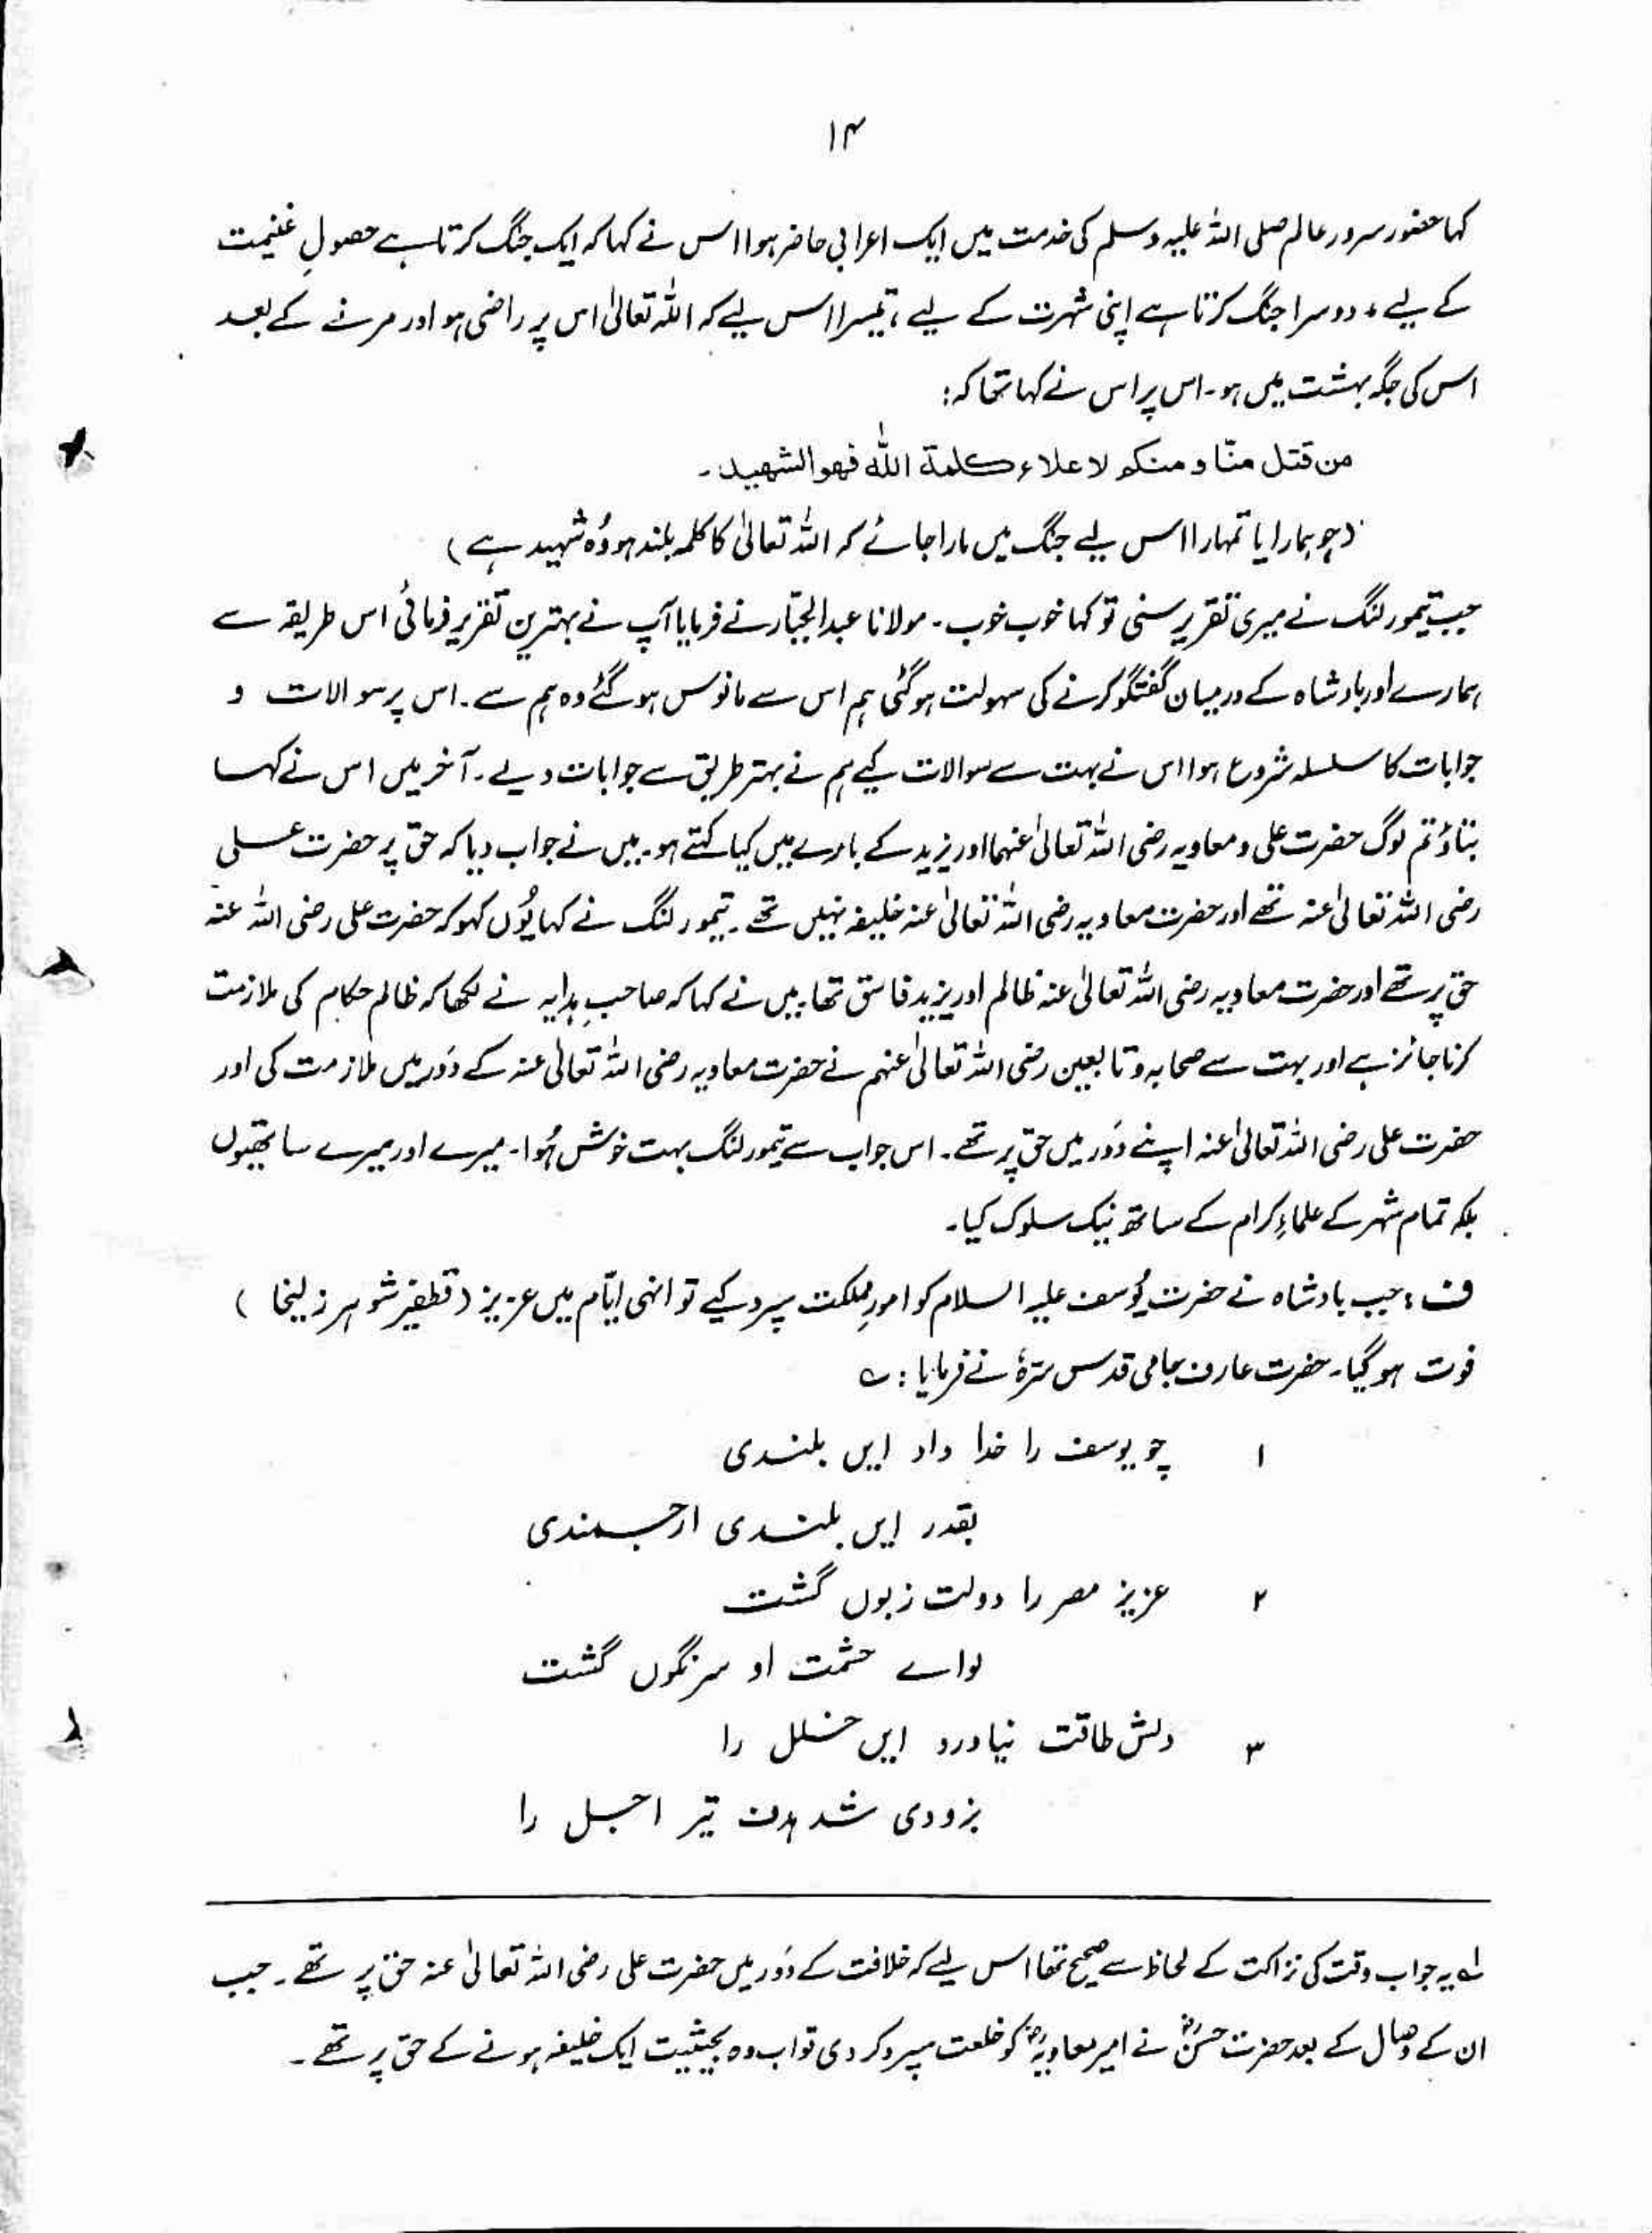 ۱۴
کہا حضور سرور عالم صلی اللہ علیہ وسلم کی خدمت میں ایک اعرابی حاضر ہوا اس نے کہا کہ ایک جنگ کرتا ہے حصولِ غنیمت
کے لیے، دوسرا جنگ کرتا ہے اپنی شہرت کے لیے، تیسرا اس لیے کہ اللہ تعالیٰ اس پر راضی ہو اور مرنے کے بعد
اس کی جگہ بہشت میں ہو۔ اس پر اس نے کہا تھا کہ:
من قتل منّا و منکو لاعلاء کلمة اللّٰه فهو الشهيد۔
(جو ہمارا یا تمہارا اس لیے جنگ میں مارا جائے کہ اللہ تعالیٰ کا کلمہ بلند ہو وُہ شہید ہے)
جب تیمور لنگ نے میری تقریر سنی تو کہا خوب خوب۔ مولانا عبدالجبّار نے فرمایا آپ نے بہترین تقریر فرمائی اس طریقہ سے
ہمارے اور بادشاہ کے درمیان گفتگو کرنے کی سہولت ہو گئی ہم اس سے مانوس ہو گئے وہ ہم سے۔ اس پر سوالات و
جوابات کا سلسلہ شروع ہوا اس نے بہت سے سوالات کیے ہم نے بہتر طریق سے جوابات دیے۔ آخر میں اس نے کہا
بتاؤ تم لوگ حضرت علی و معاویہ رضی اللہ تعالیٰ عنہما اور یزید کے بارے میں کیا کہتے ہو۔ میں نے جواب دیا کہ حق پر حضرت علی
رضی اللہ تعالیٰ عنہ تھے اور حضرت معاویہ رضی اللہ تعالیٰ عنہ خلیفہ نہیں تھے۔ تیمور لنگ نے کہا یُوں کہو کہ حضرت علی رضی اللہ عنہ
حق پر تھے اور حضرت معاویہ رضی اللہ تعالیٰ عنہ ظالم اور یزید فاسق تھا۔ میں نے کہا کہ صاحبِ ہدایہ نے لکھا کہ ظالم حکام کی ملازمت
کرنا جائز ہے اور بہت سے صحابہ و تابعین رضی اللہ تعالیٰ عنہم نے حضرت معاویہ رضی اللہ تعالیٰ عنہ کے دَور میں ملازمت کی اور
حضرت علی رضی اللہ تعالیٰ عنہ اپنے دَور میں حق پر تھے۔ اس جواب سے تیمور لنگ بہت خوش ہُوا۔ میرے اور میرے ساتھیوں
بلکہ تمام شہر کے علماءِ کرام کے ساتھ نیک سلوک کیا۔
ف: جب بادشاہ نے حضرت یُوسف علیہ السلام کو امورِ مملکت سپرد کیے تو انہی ایّام میں عزیز (قطفیر شوہر زلیخا)
فوت ہو گیا۔ حضرت عارف جامی قدس سرّہٗ نے فرمایا: ؎
۱ چو یوسف را خدا داد ایں بلندی
بقدر ایں بلندی ارجمندی
۲ عزیز مصر را دولت زبوں گشت
لواے حشمت او سرنگوں گشت
۳ دلش طاقت نیاورد ایں خلل را
بزودی شد ہدف تیر اجل را
لے یہ جواب وقت کی نزاکت کے لحاظ سے صحیح تھا اس لیے کہ خلافت کے دَور میں حضرت علی رضی اللہ تعالیٰ عنہ حق پر تھے۔ جب
ان کے وصال کے بعد حضرت حسنؓ نے امیر معاویہؓ کو خلعت سپرد کر دی تو اب وہ بحیثیت ایک خلیفہ ہونے کے حق پر تھے۔